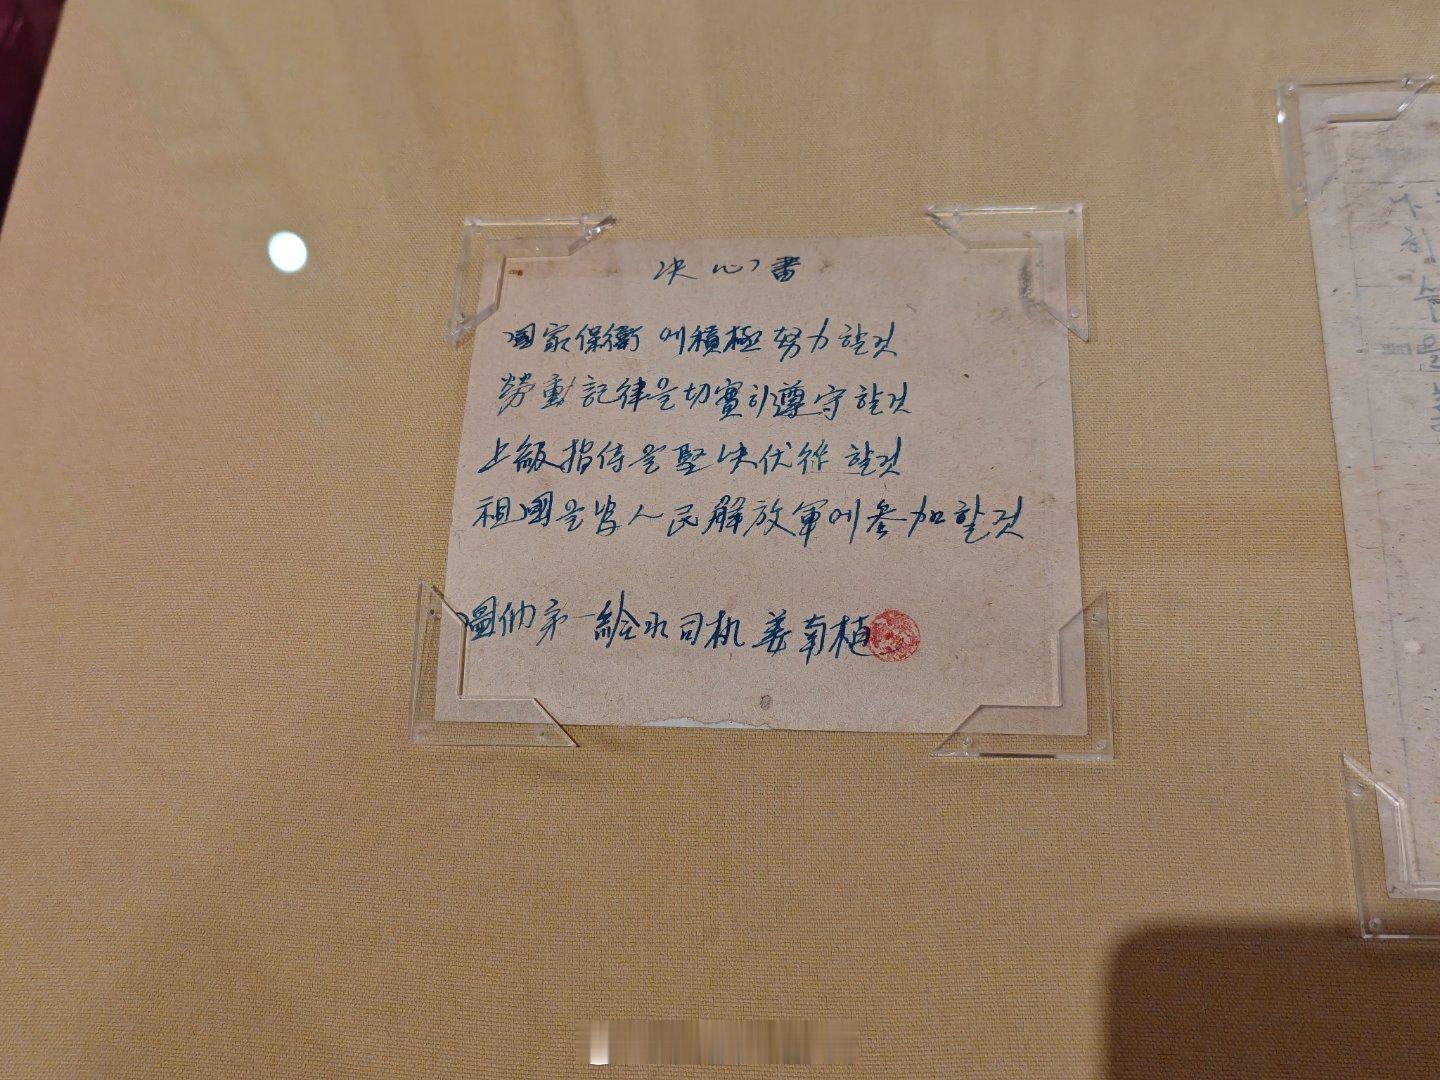 决心書
國家保衛에積極努力할것
勞動記律을切實히遵守할것
上級指侍을堅决伏從할것
祖國을 人民解放軍에參加할것
圖們第一給水司机 姜南植